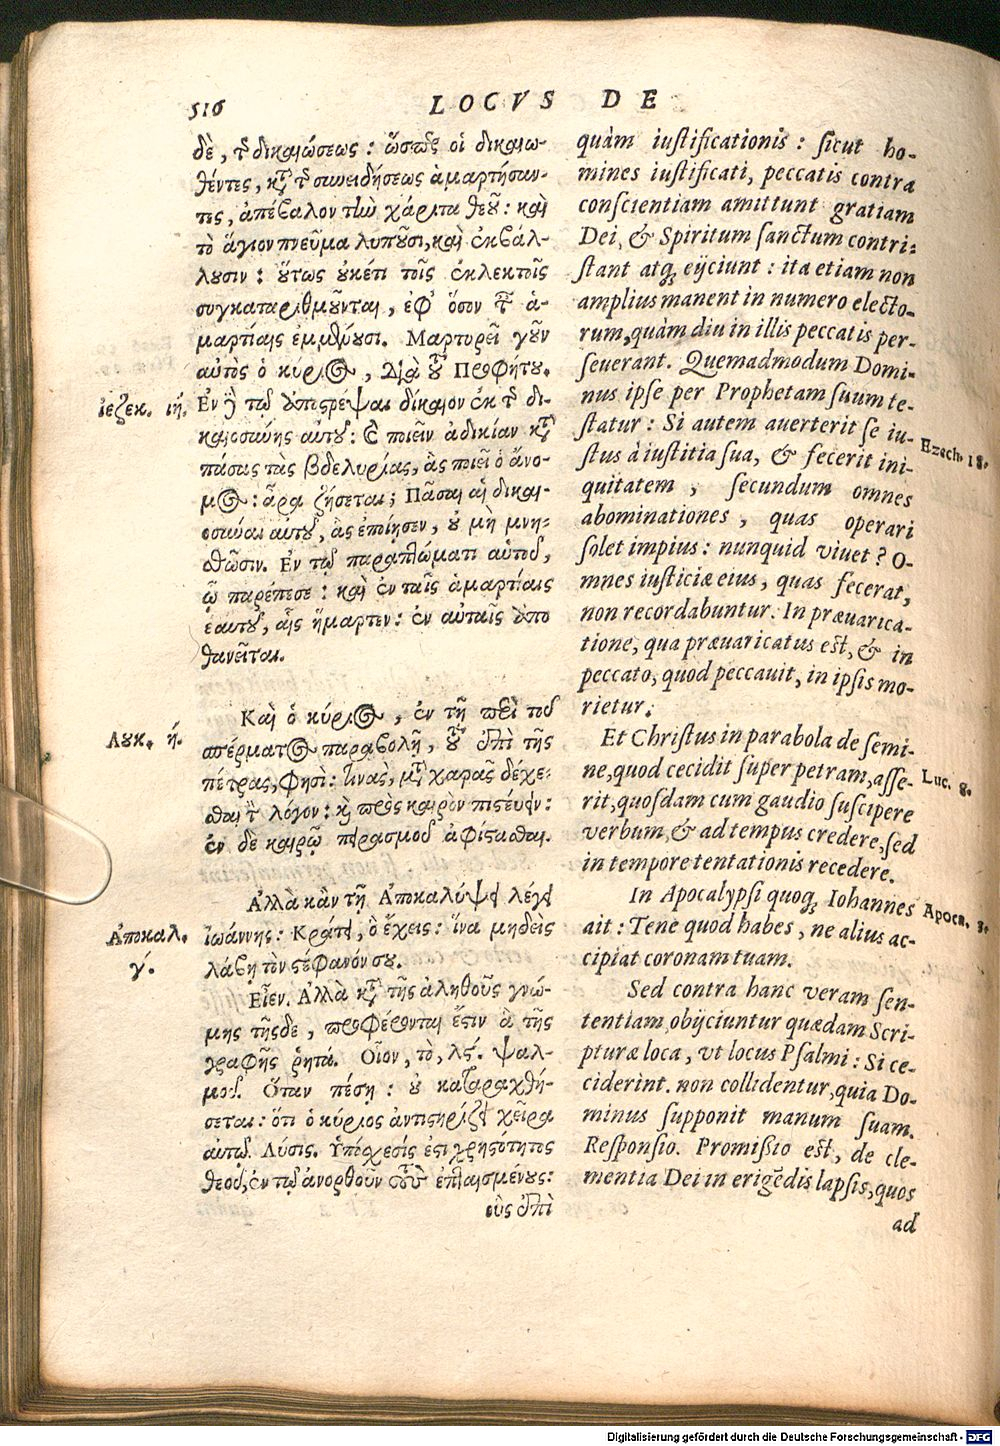 516
LOCVS DE
δὲ, τῆς δικαιώσεως: ὥσπερ οἱ δικαιω-
θέντες, κατὰ τῆς συνειδήσεως ἁμαρτήσαν-
τες, ἀπέβαλον τὴν χάριτα θεοῦ: καὶ
τὸ ἅγιον πνεῦμα λυποῦσι, καὶ ἐκβάλ-
λουσιν: οὕτως οὐκέτι τοῖς ἐκλεκτοῖς
συγκαταριθμοῦνται, ἐφ' ὅσον ταῖς ἁ-
μαρτίαις ἐμμένουσι. Μαρτυρεῖ γοῦν
αὐτὸς ὁ κύριος, Διὰ τοῦ Προφήτου.
ἰεζεκ. ιή.
Ἐν δὲ τῷ ὑποστρέψαι δίκαιον ἐκ τῆς δι-
καιοσύνης αὑτοῦ: καὶ ποιεῖν ἀδικίαν κατὰ
πάσας τὰς βδελυρίας, ἃς ποιεῖ ὁ ἄνο-
μος: ἆρα ζήσεται; Πᾶσαι αἱ δικαι-
οσύναι αὐτοῦ, ἃς ἐποίησεν, οὐ μὴ μνη-
σθῶσιν. Ἐν τῷ παραπτώματι αὑτοῦ,
ᾧ παρέπεσε: καὶ ἐν ταῖς ἁμαρτίαις
ἑαυτοῦ, αἷς ἥμαρτεν: ἐν αὐταῖς ἀπο
θανεῖται.
Λουκ. ή.
Καὶ ὁ κύριος, ἐν τῇ περὶ τοῦ
σπέρματος παραβολῇ, τοῦ ἐπὶ τῆς
πέτρας, φησὶ: τινὰς, μετὰ χαρᾶς δέχε-
σθαι τὸν λόγον: καὶ πρὸς καιρὸν πιστεύειν:
ἐν δὲ καιρῷ πειρασμοῦ ἀφίστασθαι.
Ἀλλὰ κἂν τῇ Ἀποκαλύψει λέγει
Ἀποκαλ.
γ΄.
ἰωάννης: Κράτει, ὃ ἔχεις: ἵνα μηδεὶς
λάβῃ τὸν στέφανόν σου.
Εἶεν. Ἀλλὰ κατὰ τῆς ἀληθοῦς γνώ-
μης τῆςδε, προφέρονται ἔστιν ἃ τῆς
γραφῆς ῥητά. Οἷον, τὸ, λϛ΄. ψαλ-
μοῦ. Ὅταν πέσῃ: οὐ καταραχθή-
σεται: ὅτι ὁ κύριος ἀντιστηρίζει χεῖρα
αὐτοῦ. Λύσις. Ὑπόσχεσίς ἐστι χρηστότητος
θεοῦ, ἐν τῷ ἀνορθοῦν τοὺς ἐπταισμένους:
οὓς ἐπὶ
quàm iustificationis: sicut ho-
mines iustificati, peccatis contra
conscientiam amittunt gratiam
Dei, & Spiritum sanctum contri-
stant atq; eijciunt: ita etiam non
amplius manent in numero electo-
rum, quàm diu in illis peccatis per-
seuerant. Quemadmodum Domi-
nus ipse per Prophetam suum te-
statur: Si autem auerterit se iu-
Ezech. 18.
stus à iustitia sua, & fecerit ini-
quitatem, secundum omnes
abominationes, quas operari
solet impius: nunquid viuet? O-
mnes iusticiæ eius, quas fecerat,
non recordabuntur. In præuarica-
tione, qua præuaricatus est, & in
peccato, quod peccauit, in ipsis mo-
rietur.
Et Christus in parabola de semi-
ne, quod cecidit super petram, asse-
Luc. 8.
rit, quosdam cum gaudio suscipere
verbum, & ad tempus credere, sed
in tempore tentationis recedere.
In Apocalypsi quoq; Iohannes
Apoca. 3.
ait: Tene quod habes, ne alius ac-
cipiat coronam tuam.
Sed contra hanc veram sen-
tentiam obijciuntur quædam Scri-
pturæ loca, vt locus Psalmi: Si ce-
ciderint. non collidentur, quia Do-
minus supponit manum suam.
Responsio. Promissio est, de cle-
mentia Dei in erigēdis lapsis, quos
ad
Digitalisierung gefördert durch die Deutsche Forschungsgemeinschaft - DFG